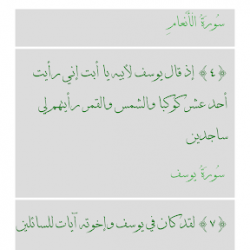 سُورَةُ الأَنْعَامِ
﴿٤﴾ إذ قال يوسف لأبيه يا أبت إني رأيت
أحد عشر كوكبا والشمس والقمر رأيتهم لي
ساجدين
سُورَةُ يوسف
﴿٧﴾ لقد كان في يوسف وإخوته آيات للسائلين